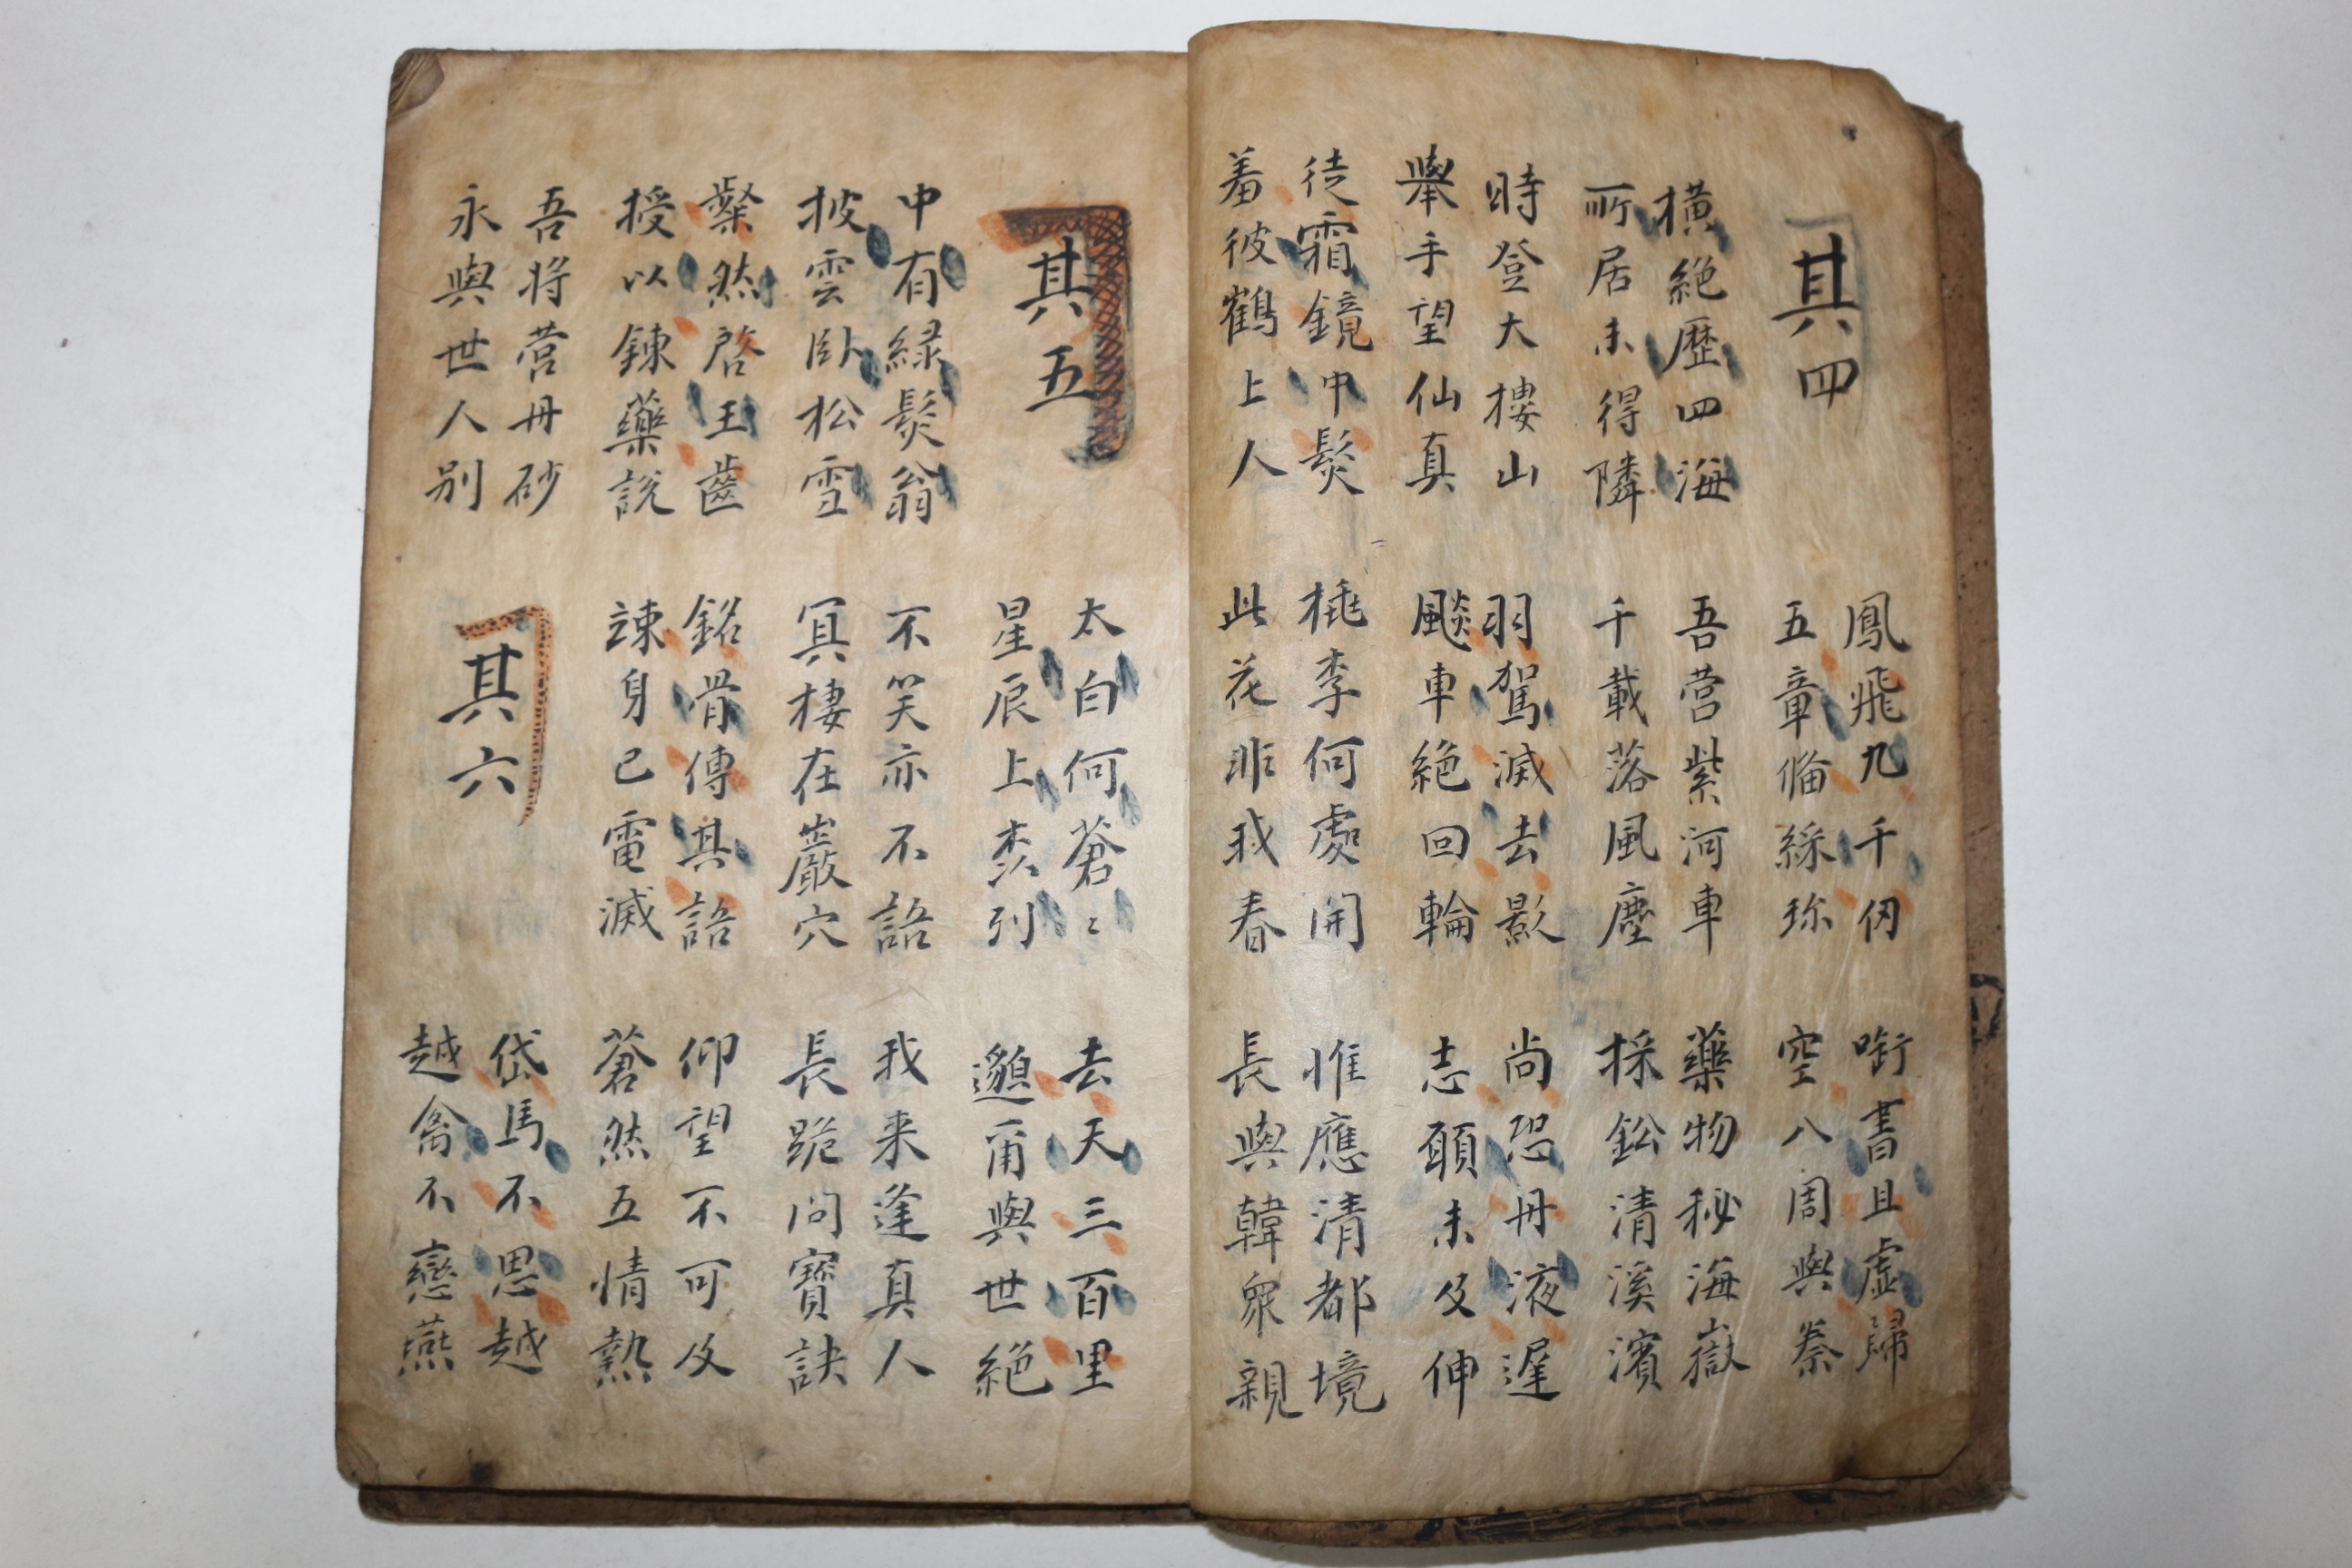 其四
鳳飛九千仞
五章偹綵珎
啣書且虛歸
空八周與秦
横絕歷四海
所居未得隣
吾营紫河車
千載落風塵
藥物秘海嶽
採鈆清溪濱
時登大樓山
舉手望仙真
羽駕滅去影
飈車絕回輪
尚恐丹液遲
志願未及伸
徒霜鏡中髮
羞彼鶴上人
桃李何處開
此花非我春
惟應清都境
長與韓衆親
其五
太白何蒼〻
星辰上森列
去天三百里
邈爾與世絕
中有緑髮翁
披雲臥松雪
不笑亦不語
冥棲在巖穴
我来逢真人
長跪問寶訣
粲然啓王齒
授以鍊藥說
銘骨傳其語
竦身已電滅
仰望不可及
蒼然五情熱
吾将营丹砂
永與世人别
其六
岱馬不思越
越禽不戀燕